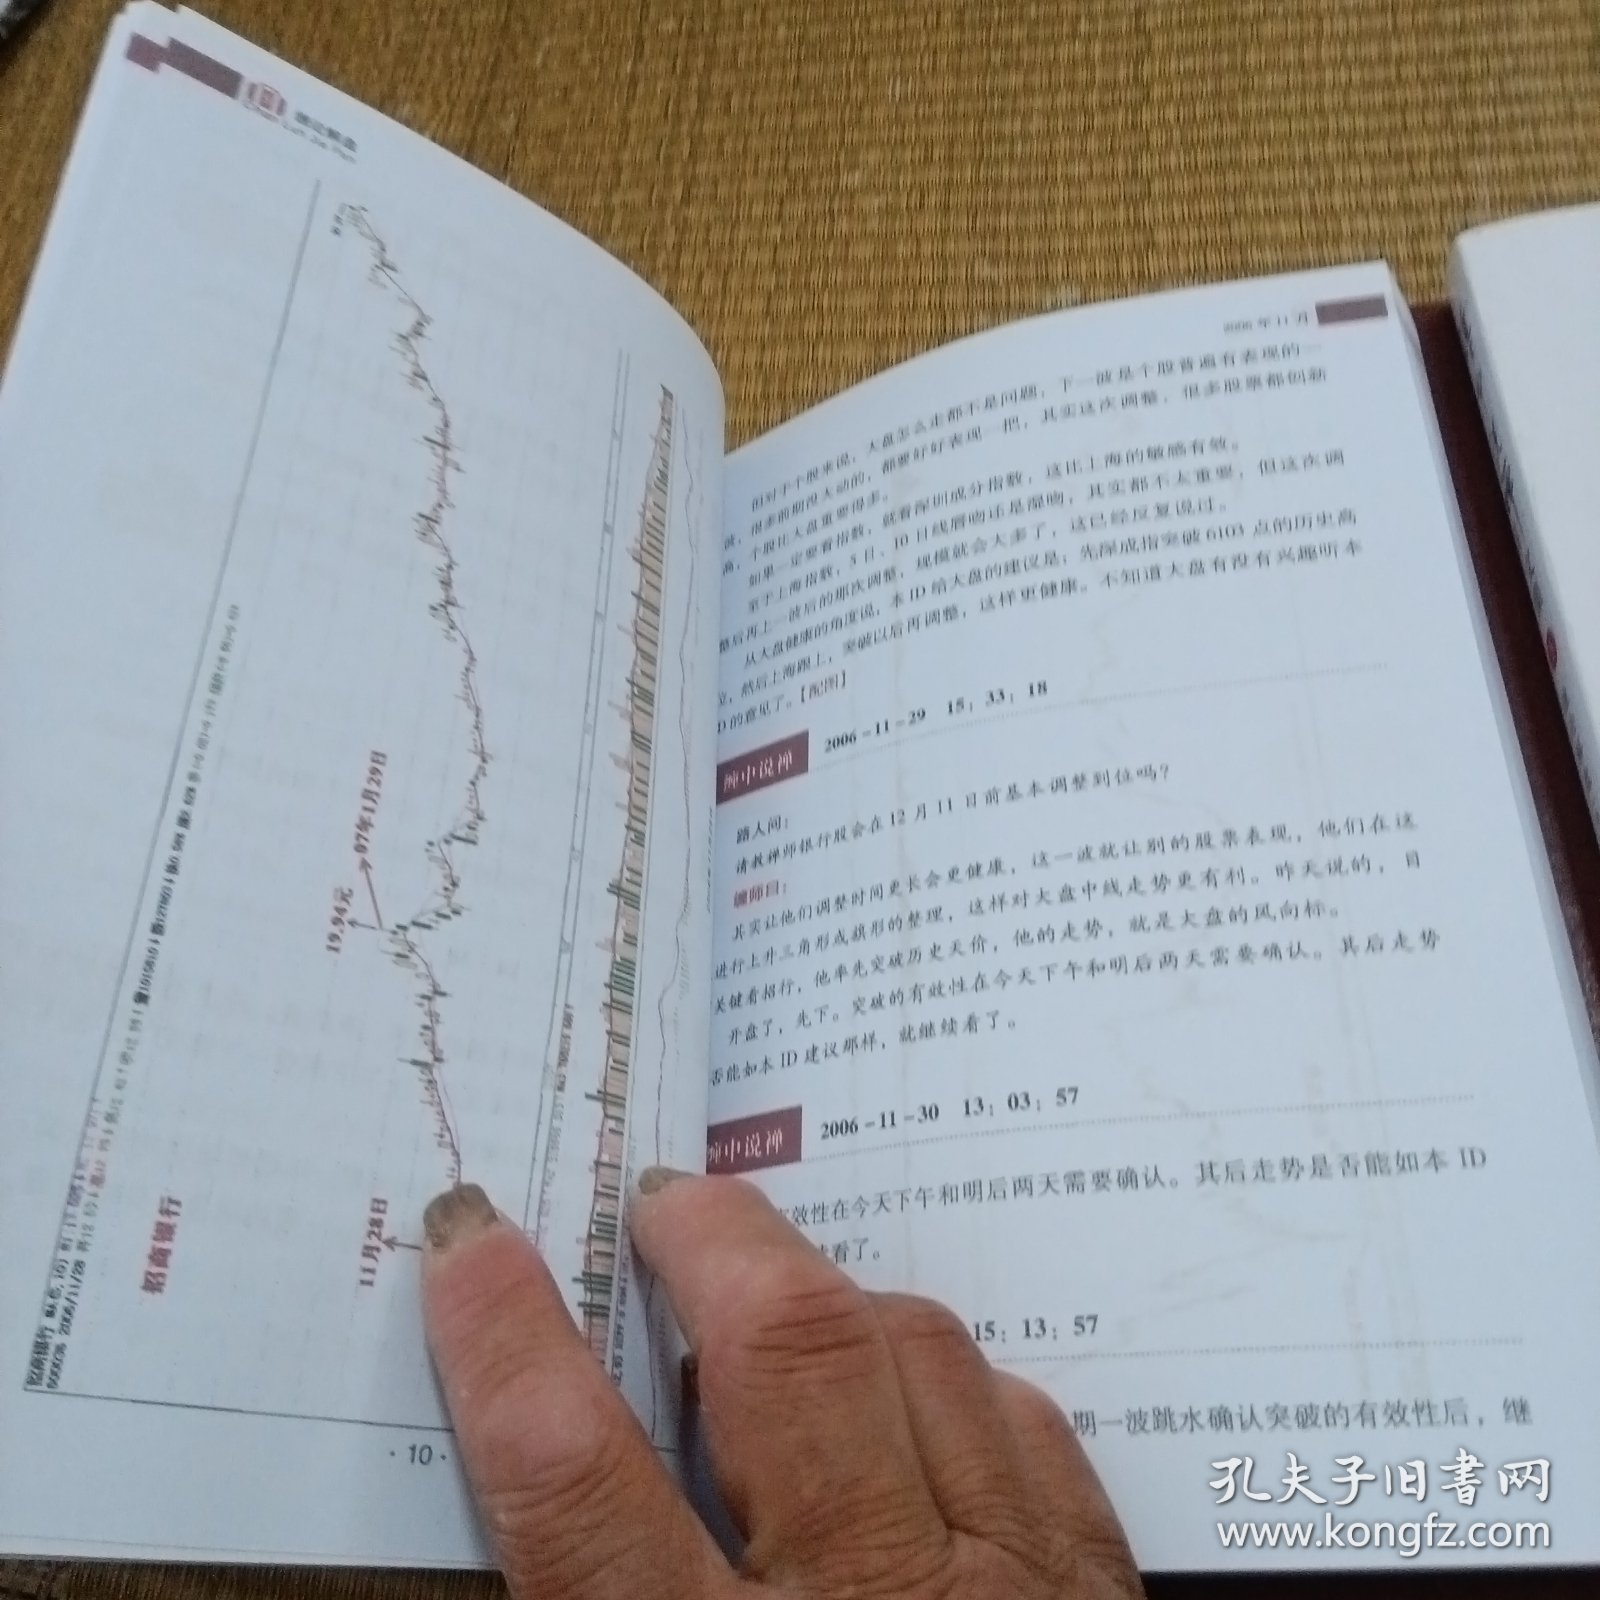 缠论解盘
Chan Lun Jie Pan
招商银行
11月28日
19.94元
07年1月29日
· 10 ·
2006年11月
但对于个股来说，大盘怎么走都不是问题，下一波是个股普遍有表现的一
波，很多前期没大动的，都要好好表现一把，其实这次调整，很多股票都创新
高，个股比大盘重要得多。
如果一定要看指数，就看深圳成分指数，这比上海的敏感有效。
至于上海指数，5日、10日线唇吻还是湿吻，其实都不太重要，但这次调
整后再上一波后的那次调整，规模就会大多了，这已经反复说过。
从大盘健康的角度说，本ID给大盘的建议是：先深成指突破6103点的历史高
位，然后上海跟上，突破以后再调整，这样更健康。不知道大盘有没有兴趣听本
ID的意见了。【配图】
缠中说禅 2006-11-29 15：33：18
路人问：
请教禅师银行股会在12月11日前基本调整到位吗？
缠师曰：
其实让他们调整时间更长会更健康，这一波就让别的股票表现，他们在这
进行上升三角形或旗形的整理，这样对大盘中线走势更有利。昨天说的，目
关键看招行，他率先突破历史天价，他的走势，就是大盘的风向标。
开盘了，先下。突破的有效性在今天下午和明后两天需要确认。其后走势
否能如本ID建议那样，就继续看了。
缠中说禅 2006-11-30 13：03：57
效性在今天下午和明后两天需要确认。其后走势是否能如本ID
看了。
15：13：57
期一波跳水确认突破的有效性后，继
孔夫子旧书网
www.kongfz.com